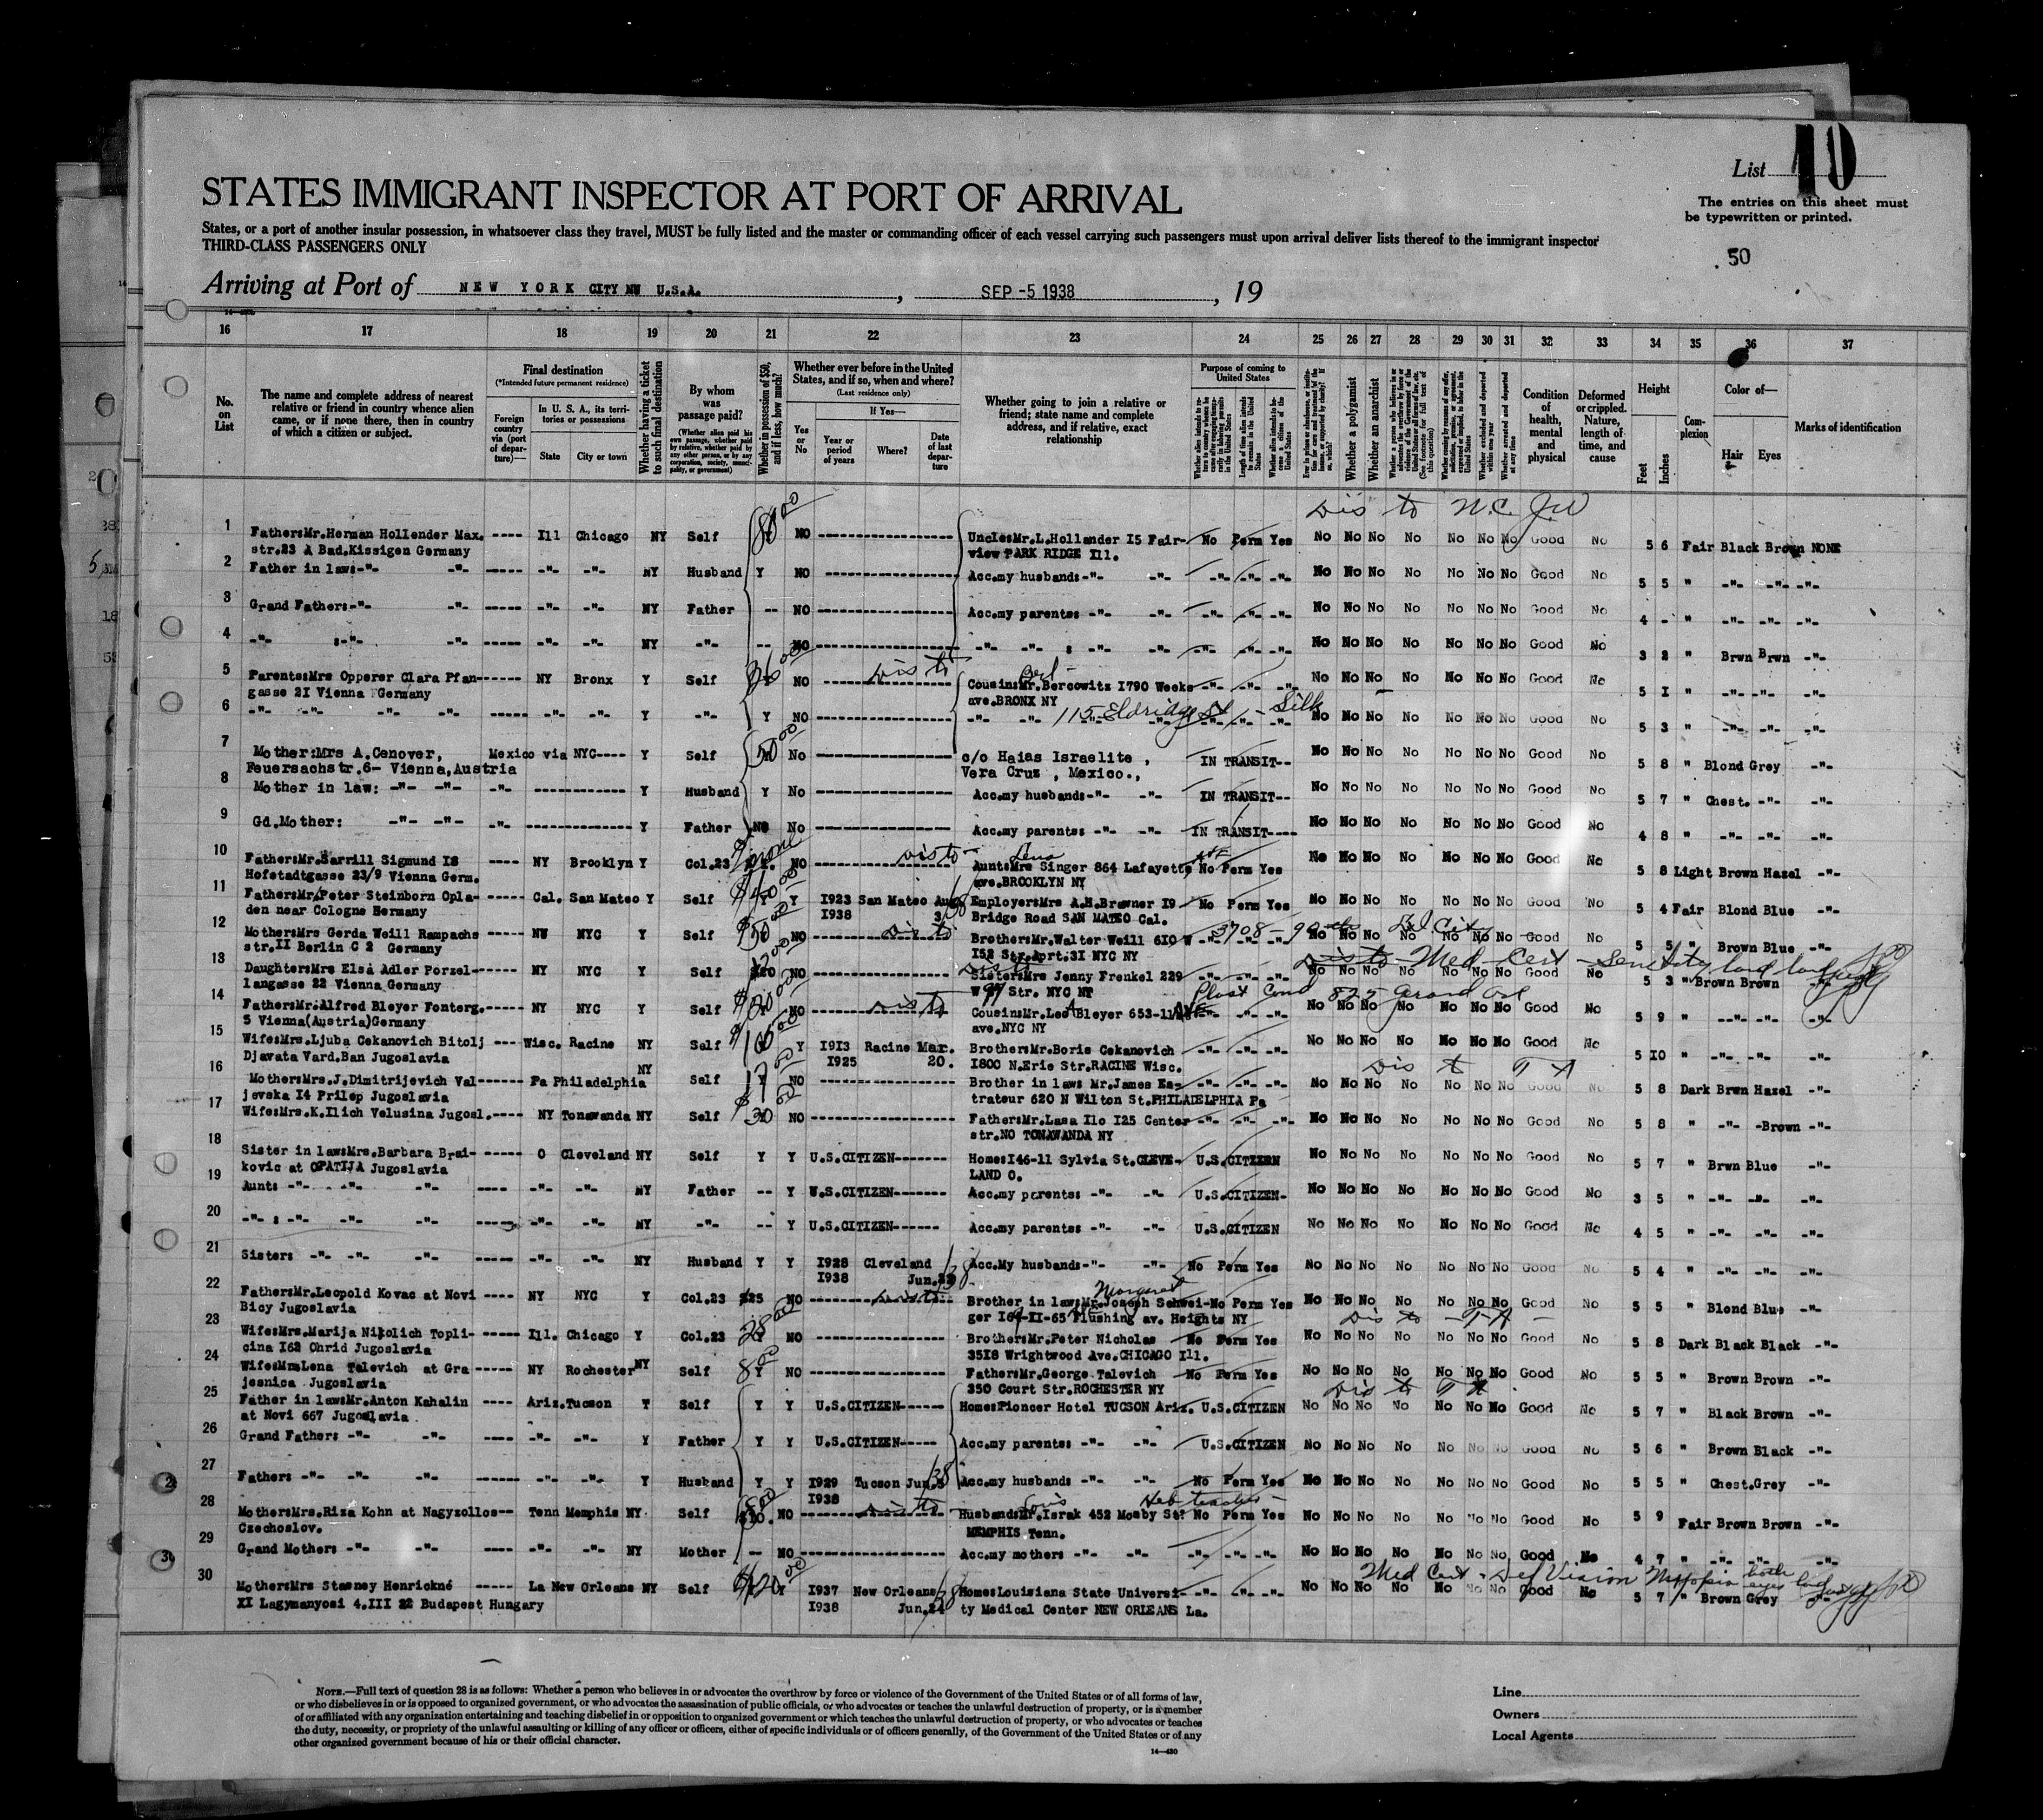 List 10
STATES IMMIGRANT INSPECTOR AT PORT OF ARRIVAL
The entries on this sheet must
be typewritten or printed.
States, or a port of another insular possession, in whatsoever class they travel, MUST be fully listed and the master or commanding officer of each vessel carrying such passengers must upon arrival deliver lists thereof to the immigrant inspector
THIRD-CLASS PASSENGERS ONLY
50
Arriving at Port of NEW YORK CITY NW U.S.A. , SEP -5 1938 , 19
16 17 18 19 20 21 22 23 24 25 26 27 28 29 30 31 32 33 34 35 36 37
No. on List
The name and complete address of nearest relative or friend in country whence alien came, or if none there, then in country of which a citizen or subject.
Final destination
(*Intended future permanent residence)
Foreign country via (port of departure)—
In U. S. A., its territories or possessions
State
City or town
Whether having a ticket to such final destination
By whom was passage paid?
(Whether alien paid his own passage, whether paid by relative, whether paid by any other person, or by any corporation, society, municipality, or government)
Whether in possession of $50, and if less, how much?
Whether ever before in the United States, and if so, when and where?
(Last residence only)
Yes or No
If Yes—
Year or period of years
Where?
Date of last departure
Whether going to join a relative or friend; state name and complete address, and if relative, exact relationship
Purpose of coming to United States
Whether a polygamist
Whether an anarchist
Condition of health, mental and physical
Deformed or crippled. Nature, length of time, and cause
Height
Feet
Inches
Complexion
Color of—
Hair
Eyes
Marks of identification
Dis to N.C. J.W
1 Father:Mr.Herman Hollender Max. ---- Ill Chicago NY Self NO Uncle:Mr.L.Hollander I5 Fair- No Perm Yes No No No No No No No Good No 5 6 Fair Black Brown NONE
str.23 A Bad.Kissigen Germany view PARK RIDGE Ill.
2 Father in law:-"- -"- ----- -"- -"- NY Husband Y NO Acc.my husband:-"- -"- -"- -"- -"- No No No No No No No Good No 5 5 " -"- -"- -"-
3 Grand Father:-"- -"- ----- -"- -"- NY Father -- NO Acc.my parents: -"- -"- -"- -"- No No No No No No No Good No 4 - " -"- -"- -"-
4 -"- :-"- -"- ----- -"- -"- NY -"- -- NO -"- -"- : -"- -"- -"- -"- -"- No No No No No No No Good No 3 2 " Brwn Brwn -"-
5 Parents:Mrs Opperer Clara Pfan------ NY Bronx Y Self NO Dis to Cousin:Mr.Bercowitz I790 Weeks -"- -"- -"- No No No No No No No Good No 5 I " -"- -"- -"-
gasse 2I Vienna Germany ave.BRONX NY
6 -"- -"- -"- -"- ----- -"- -"- Y -"- Y NO -"- -"- 115 Eldridge St - Silk No No No No No No No Good No 5 3 " -"- -"- -"-
7 Mother:Mrs A.Cenover, Mexico via NYC---- Y Self 50 00 No c/o Haias Israelite , IN TRANSIT-- No No No No No No No Good No 5 8 " Blond Grey -"-
Feuersachstr.6- Vienna,Austria Vera Cruz , Mexico.,
8 Mother in law: -"- -"- -"- Y Husband Y No Acc.my husband:-"- -"- IN TRANSIT-- No No No No No No No Good No 5 7 " Chest. -"- -"-
9 Gd.Mother: -"- -"- -"- Y Father NO No Acc.my parents: -"- -"- IN TRANSIT---- No No No No No No No Good No 4 8 " -"- -"- -"-
10 Father:Mr.Sarrill Sigmund I8 ---- NY Brooklyn Y Col.23 none NO Dis to Lena Aunt:Mrs Singer 864 Lafayette No Perm Yes No No No No No No No Good No 5 8 Light Brown Hazel -"-
Hofstadtgasse 23/9 Vienna Germ. ave.BROOKLYN NY
11 Father:Mr.Peter Steinborn Opla- ----- Cal. San Mateo Y Self Y I923 San Mateo Aug Employer:Mrs A.H.Brawner I9 No Perm Yes No No No No No No No Good No 5 4 Fair Blond Blue -"-
den near Cologne Germany I938 3 Bridge Road SAN MATEO Cal.
12 Mother:Mrs Gerda Weill Rampachs ----- NW NYC Y Self NO Dis to Brother:Mr.Walter Weill 6I0 W 3708 - 90 No No No No No No No Good No 5 5 " Brown Blue -"-
str.II Berlin C 2 Germany I52 Str.Aprt.3I NYC NY
13 Daughter:Mrs Elsa Adler Porzel------- NY NYC Y Self NO Dis to Sister:Mrs Jenny Frenkel 229 -"- -"- -"- Dis to - Med - Cert - Senility No No No No No No No Good No 5 3 " Brown Brown
langasse 22 Vienna Germany W 97 Str. NYC NY
14 Father:Mr.Alfred Bleyer Fonterg.----- NY NYC Y Self NO Dis to Cousin:Mr.Leo Bleyer 653-11 825 Grand No No No No No No No Good No 5 9 " -"- -"- -"-
5 Vienna(Austria)Germany ave.NYC NY
15 Wife:Mrs.Ljuba Cekanovich Bitolj --- Wisc. Racine NY Self Y I9I3 Racine Mar. Brother:Mr.Boris Cekanovich -"- -"- -"- No No No No No No No Good No 5 I0 " -"- -"- -"-
Djavata Vard.Ban Jugoslavia I925 20. I800 N.Erie Str.RACINE Wisc.
16 Mother:Mrs.J.Dimitrijevich Val------- Pa Philadelphia NY Self NO Brother in law: Mr.James Es- -"- -"- -"- No No No No No No No Good No 5 8 Dark Brwn Hazel -"-
jevska I4 Prilep Jugoslavia trateur 620 N Wilton St.PHILADELPHIA Pa
17 Wife:Mrs.K.Ilich Velusina Jugosl.---- NY Tonawanda NY Self 30 NO Father:Mr.Lasa Ilo I25 Center -"- -"- -"- No No No No No No No Good No 5 8 " -"- -Brown -"-
str.NO TONAWANDA NY
18 Sister in law:Mrs.Barbara Brai- ----- O Cleveland NY Self Y Y U.S.CITIZEN------- Home:I46-11 Sylvia St.CLEVE- U.S.CITIZEN No No No No No No No Good No 5 7 " Brwn Blue -"-
kovic at OPATIJA Jugoslavia LAND O.
19 Aunt: -"- -"- -"- ---- -"- -"- NY Father -- Y U.S.CITIZEN------- Acc.my parents: -"- -"- U.S.CITIZEN- No No No No No No No Good No 3 5 " -"- -"- -"-
20 -"- : -"- -"- -"- ----- -"- -"- NY -"- -- Y U.S.CITIZEN------ Acc.my parents: -"- -"- U.S.CITIZEN No No No No No No No Good No 4 5 " -"- -"- -"-
21 Sister: -"- -"- -"- ----- -"- -"- NY Husband Y Y I928 Cleveland Acc.My husband:-"- -"- No Perm Yes No No No No No No No Good No 5 4 " -"- -"- -"-
I938 Jun.
22 Father:Mr.Leopold Kovac at Novi ---- NY NYC Y Col.23 $25 NO Dis to Margaret Brother in law:Mr.Joseph Schwei-No Perm Yes No No No No No No No Good No 5 5 " Blond Blue -"-
Bicy Jugoslavia ger Flushing av. Heights NY
23 Wife:Mrs.Marija Nikolich Topli- ----- Ill. Chicago Y Col.23 28 00 NO Brother:Mr.Peter Nicholas No Perm Yes No No No No No No No Good No 5 8 Dark Black Black -"-
cina I62 Ohrid Jugoslavia 35I8 Wrightwood Ave.CHICAGO Ill.
24 Wife:Mrs Lena Talevich at Gra ----- NY Rochester NY Self 8 00 NO Father:Mr.George Talevich No Perm Yes No No No No No No No Good No 5 5 " Brown Brown -"-
jesnica Jugoslavia 350 Court Str.ROCHESTER NY
25 Father in law:Mr.Anton Kahalin ---- Ariz.Tucson Y Self Y Y U.S.CITIZEN------ Home:Pioneer Hotel TUCSON Ariz. U.S.CITIZEN No No No No No No No Good No 5 7 " Black Brown -"-
at Novi 667 Jugoslavia
26 Grand Father: -"- -"- ---- -"- -"- Y Father Y Y U.S.CITIZEN----- Acc.my parents: -"- -"- U.S.CITIZEN No No No No No No No Good No 5 6 " Brown Black -"-
27 Father: -"- -"- -"- ------ -"- -"- Y Husband Y Y I929 Tucson Jun. Acc.my husband: -"- -"- No Perm Yes No No No No No No No Good No 5 5 " Chest.Grey -"-
I938
28 Mother:Mrs.Riza Kohn at Nagyzollos-- Tenn Memphis NY. Self NO Dis to Husband:Mr.Israk 452 Mosby St. No Perm Yes No No No No No No No Good No 5 9 Fair Brown Brown -"-
Czechoslov. MEMPHIS Tenn.
29 Grand Mother: -"- -"- ---- -"- -"- NY Mother -- NO Acc.my mother: -"- -"- -"- -"- -"- No No No No No No No Good No 4 7 " -"- -"- -"-
30 Mother:Mrs Stasney Henrickné ----- La New Orleans NY Self I937 New Orleans Home:Louisiana State Universi- -"- -"- -"- Med Cert - Def Vision Myopia both eyes No No No No No No No Good No 5 7 " Brown Grey -"-
XI Lagymanyosi 4.III 22 Budapest Hungary I938 Jun.24 ty Medical Center NEW ORLEANS La.
NOTE.—Full text of question 28 is as follows: Whether a person who believes in or advocates the overthrow by force or violence of the Government of the United States or of all forms of law,
or who disbelieves in or is opposed to organized government, or who advocates the assassination of public officials, or who advocates or teaches the unlawful destruction of property, or is a member
of or affiliated with any organization entertaining and teaching disbelief in or opposition to organized government or which teaches the unlawful destruction of property, or who advocates or teaches
the duty, necessity, or propriety of the unlawful assaulting or killing of any officer or officers, either of specific individuals or of officers generally, of the Government of the United States or of any
other organized government because of his or their official character.
14—430
Line
Owners
Local Agents